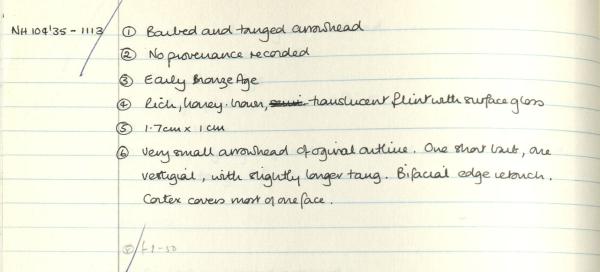 NH 104'35 - 1113 ① Barbed and tanged arrowhead
② No provenance recorded
③ Early Bronze Age
④ Rich, honey-brown, translucent flint with surface gloss
⑤ 1.7cm x 1cm
⑥ Very small arrowhead of ogival outline. One short barb, one
vestigial, with slightly longer tang. Bifacial edge retouch.
Cortex covers most of one face.